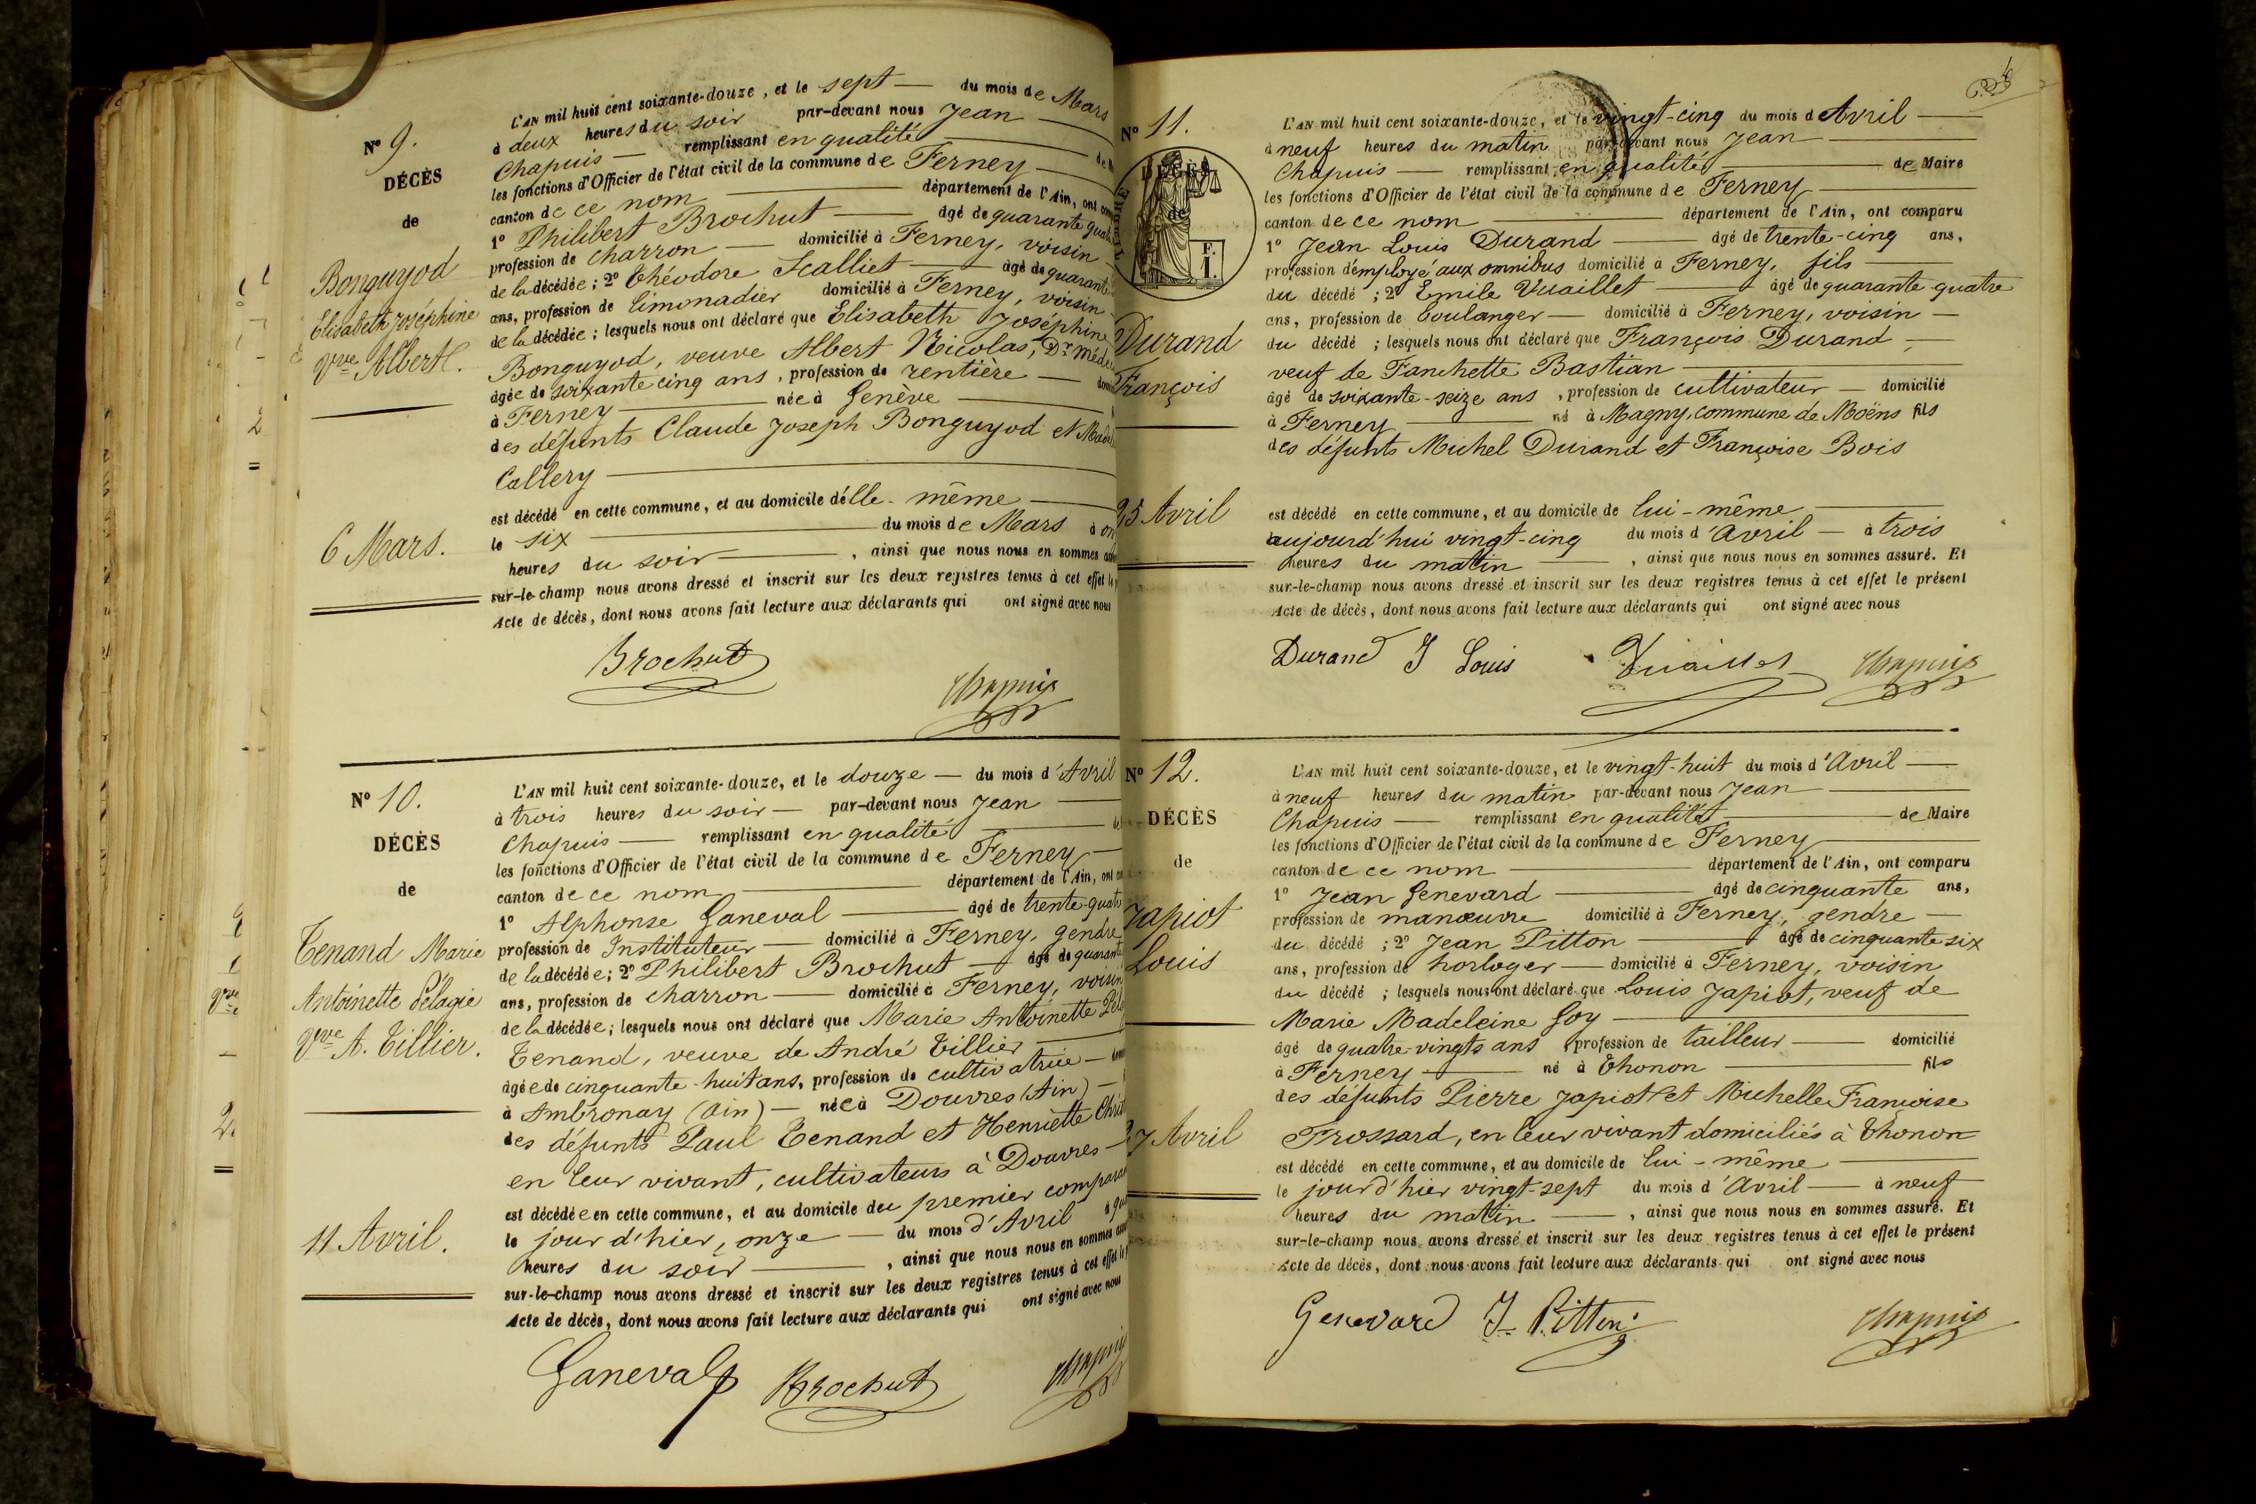 N° 9.
DÉCÈS
de
Bonguyod
Elisabeth Joséphine
Vve Albert.
6 Mars.
L'AN mil huit cent soixante-douze, et le sept du mois de Mars
à deux heures du soir par-devant nous Jean
Chapuis remplissant en qualité de
les fonctions d'Officier de l'état civil de la commune de Ferney
canton de ce nom département de l'Ain, ont
1° Philibert Brochut âgé de quarante
profession de charron domicilié à Ferney, voisin
de la décédée; 2° Théodore Scalliet âgé de quarante
ans, profession de limonadier domicilié à Ferney, voisin
de la décédée; lesquels nous ont déclaré que Elisabeth Joséphine
Bonguyod, veuve Albert Nicolas, Dr
âgée de soixante cinq ans, profession de rentière
à Ferney née à Genève
des défunts Claude Joseph Bonguyod et
Callery
est décédé en cette commune, et au domicile d'elle-même
le six du mois de Mars à
heures du soir, ainsi que nous nous en sommes
sur-le-champ nous avons dressé et inscrit sur les deux registres tenus à cet effet le
Acte de décès, dont nous avons fait lecture aux déclarants qui ont signé avec nous
Brochut
Chapuis
N° 10.
DÉCÈS
de
Tenand Marie
Antoinette Pélagie
Vve A. Tillier.
11 Avril.
L'AN mil huit cent soixante-douze, et le douze du mois d'Avril
à trois heures du soir par-devant nous Jean
Chapuis remplissant en qualité
les fonctions d'Officier de l'état civil de la commune de Ferney
canton de ce nom département de l'Ain, ont
1° Alphonse Ganeval âgé de trente-
profession de Instituteur domicilié à Ferney, gendre
de la décédée; 2° Philibert Brochut âgé de quarante
ans, profession de charron domicilié à Ferney, voisin
de la décédée; lesquels nous ont déclaré que Marie Antoinette
Tenand, veuve de André Tillier
âgée de cinquante-huit ans, profession de cultivatrice
à Ambronay (Ain) née à Douvres (Ain)
des défunts Paul Tenand et Henriette
en leur vivant, cultivateurs à Douvres
est décédée en cette commune, et au domicile du premier
le jour d'hier, onze du mois d'Avril à
heures du soir, ainsi que nous nous en sommes
sur-le-champ nous avons dressé et inscrit sur les deux registres tenus à cet effet le
Acte de décès, dont nous avons fait lecture aux déclarants qui ont signé avec nous
Ganeval Brochut Chapuis
N° 11.
DÉCÈS
de
Durand
François
25 Avril
L'AN mil huit cent soixante-douze, et le vingt-cinq du mois d'Avril
à neuf heures du matin par-devant nous Jean
Chapuis remplissant en qualité de Maire
les fonctions d'Officier de l'état civil de la commune de Ferney
canton de ce nom département de l'Ain, ont comparu
1° Jean Louis Durand âgé de trente-cinq ans,
profession d'employé aux omnibus domicilié à Ferney, fils
du décédé; 2° Emile Vuaillet âgé de quarante quatre
ans, profession de boulanger domicilié à Ferney, voisin
du décédé; lesquels nous ont déclaré que François Durand,
veuf de Fanchette Bastian
âgé de soixante-seize ans, profession de cultivateur domicilié
à Ferney né à Magny, commune de Moëns fils
des défunts Michel Durand et Françoise Bois
est décédé en cette commune, et au domicile de lui-même
aujourd'hui vingt-cinq du mois d'avril à trois
heures du matin, ainsi que nous nous en sommes assuré. Et
sur-le-champ nous avons dressé et inscrit sur les deux registres tenus à cet effet le présent
Acte de décès, dont nous avons fait lecture aux déclarants qui ont signé avec nous
Durand J Louis Vuaillet Chapuis
N° 12.
DÉCÈS
de
Japiot
Louis
27 Avril
L'AN mil huit cent soixante-douze, et le vingt-huit du mois d'Avril
à neuf heures du matin par-devant nous Jean
Chapuis remplissant en qualité de Maire
les fonctions d'Officier de l'état civil de la commune de Ferney
canton de ce nom département de l'Ain, ont comparu
1° Jean Genevard âgé de cinquante ans,
profession de manœuvre domicilié à Ferney, gendre
du décédé; 2° Jean Pitton âgé de cinquante six
ans, profession de horloger domicilié à Ferney, voisin
du décédé; lesquels nous ont déclaré que Louis Japiot, veuf de
Marie Madeleine Goy
âgé de quatre-vingts ans, profession de tailleur domicilié
à Ferney né à Thonon fils
des défunts Pierre Japiot et Michelle Françoise
Frossard, en leur vivant domiciliés à Thonon
est décédé en cette commune, et au domicile de lui-même
le jour d'hier vingt-sept du mois d'avril à neuf
heures du matin, ainsi que nous nous en sommes assuré. Et
sur-le-champ nous avons dressé et inscrit sur les deux registres tenus à cet effet le présent
Acte de décès, dont nous avons fait lecture aux déclarants qui ont signé avec nous
Genevard J. Pitton Chapuis